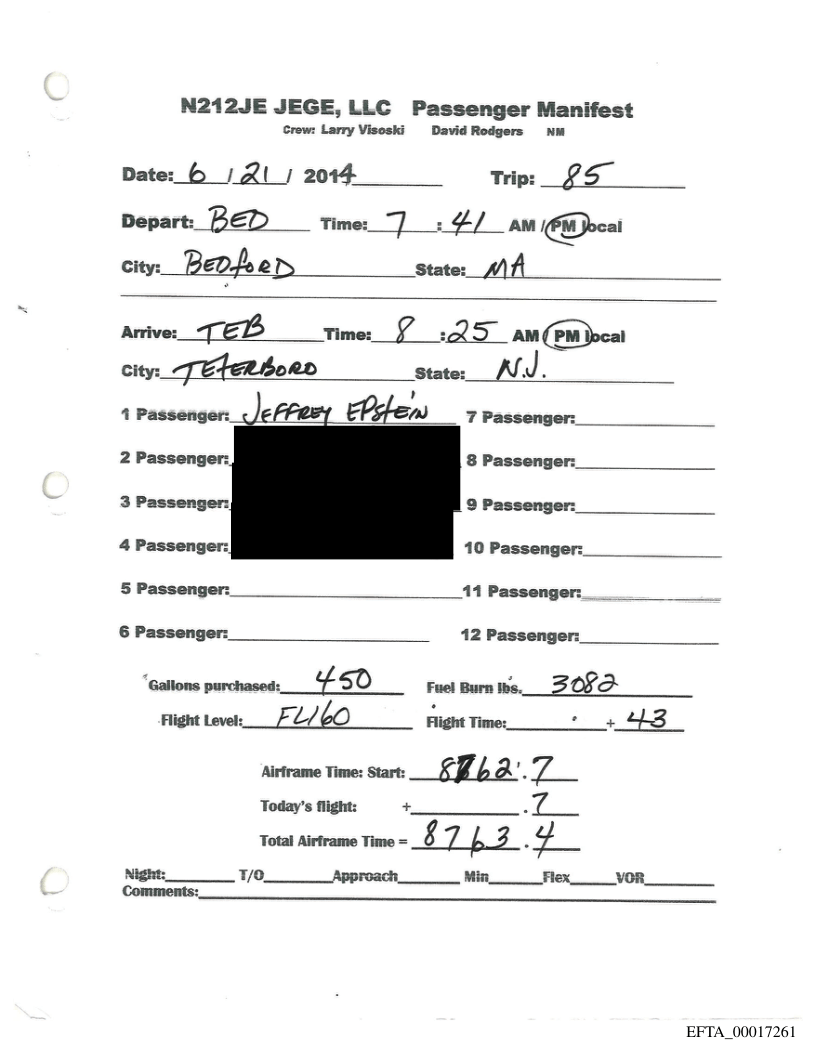 N212JE JEGE, LLC Passenger Manifest
Crew: Larry Visoski David Rodgers NM
Date: 6 / 21 / 2014 Trip: 85
Depart: BED Time: 7 : 41 AM / PM local
City: BEDFORD State: MA
Arrive: TEB Time: 8 : 25 AM / PM local
City: TETERBORO State: N.J.
1 Passenger: JEFFREY EPSTEIN 7 Passenger:
2 Passenger: 8 Passenger:
3 Passenger: 9 Passenger:
4 Passenger: 10 Passenger:
5 Passenger: 11 Passenger:
6 Passenger: 12 Passenger:
Gallons purchased: 450 Fuel Burn lbs. 3082
Flight Level: FL160 Flight Time: + 43
Airframe Time: Start: 8762.7
Today's flight: + .7
Total Airframe Time = 8763.4
Night: T/O Approach Min Flex VOR
Comments:
EFTA_00017261